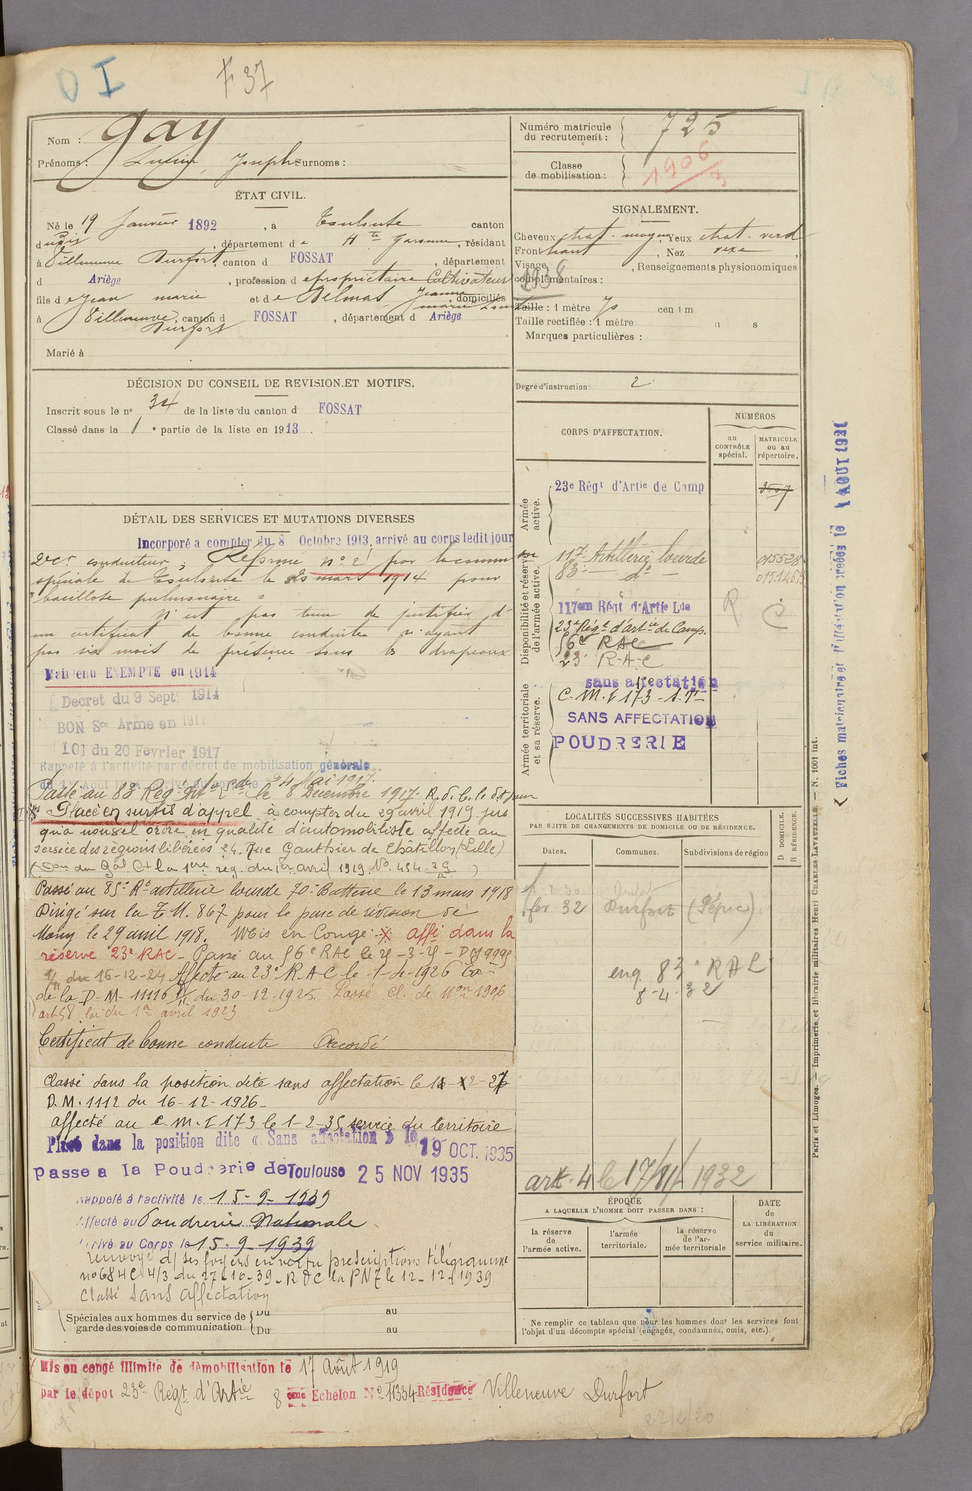 D I
F 37
Nom : Gay
Prénoms : Lucien, Joseph Surnoms :
Numéro matricule du recrutement : 725
Classe de mobilisation : 1906
ÉTAT CIVIL.
Né le 19 Janvier 1892, à Toulouse canton
dudis, département de Hte Garonne, résidant
à Villeneuve Durfort, canton d FOSSAT, département
d Ariège, profession de propriétaire Cultivateur
fils de Jean marie et de Delmas Jeanne marie, domiciliés
à Villeneuve Durfort, canton d FOSSAT, département d Ariège
Marié à
SIGNALEMENT.
Cheveux chat. moyen, Yeux chat. verd
Front haut, Nez vexe,
Visage , Renseignements physionomiques
complémentaires :
1938
Taille : 1 mètre 70 cent m
Taille rectifiée : 1 mètre " s
Marques particulières :
Degré d'instruction : 2
DÉCISION DU CONSEIL DE REVISION ET MOTIFS.
Inscrit sous le no 34 de la liste du canton d FOSSAT
Classé dans la 1e partie de la liste en 1913.
DÉTAIL DES SERVICES ET MUTATIONS DIVERSES
Incorporé a compter du 8 Octobre 1913, arrivé au corps ledit jour
2e cr conducteur, Réformé no 2 par la comm on
spéciale de Toulouse le mars 1914 pour
"bacillose pulmonaire"
N'est pas tenu de justifier d'
un certificat de bonne conduite n'ayant
pas six mois de présence sous les drapeaux
Maintenu EXEMPTE en 1914
Decret du 9 Sept 1914
BON Sce Arme en
LOI du 20 Février 1917
Rappelé à l'activité par décret de mobilisation générale
24 Mai 1917.
Passé au 83 Reg. Art. Lde le 8 décembre 1917. A. d. C. le dit jour
Placé en sursis d'appel à compter du 29 avril 1919 jus
qu'à nouvel ordre en qualité d'automobiliste affecté au
service des régions libérées 24. Rue Gauthier de Châtillon (Lille)
Passé au 85e Rt artillerie lourde 70e Batterie le 13 mars 1918
Dirigé sur la T.M. 867 pour le parc de révision de
le 29 avril 1918. Mis en Congé. Aff. dans la
réserve 23e RAC - Passé au 56e RAC
du 16-12-24 Affecté au 23e R.A.C le 1-4-1926
de la D-M- 11116 du 30-12-1925. Passé cl. de Mon 1906
art 58 loi du 1er avril 1923
Certificat de bonne conduite Accordé
Classé dans la position dite sans affectation le
D.M. 1112 du 16-12-1926
affecté au C.M.I 173 le 1-2-35 service du territoire
Placé dans la position dite « Sans affectation » le 19 OCT. 1935
Passé a la Poudrerie de Toulouse 25 NOV 1935
Rappelé à l'activité le 15-9-1939
Affecté au Poudrerie Nationale
Arrivé au Corps le 15-9-1939
Renvoyé ds ses foyers en vertu prescriptions télégramme
no 684C 4/3 du 27-10-39. RDC la PNT le 12-12-1939
Classé sans affectation
Spéciales aux hommes du service de garde des voies de communication
Du au
Du au
CORPS D'AFFECTATION.
NUMÉROS
au CONTRÔLE spécial.
MATRICULE ou au répertoire.
Armée active.
23e Régt d'Artie de Camp
Disponibilité et réserve de l'armée active.
117e Artillerie lourde
83e - do -
117em Régt d'Artie Lde
23e Régt d'artie de Camp.
56e RAC
23e R-A-C
R
C
Armée territoriale et sa réserve.
sans affectation
C.M.I 173
SANS AFFECTATION
POUDRERIE
LOCALITÉS SUCCESSIVES HABITÉES
PAR SUITE DE CHANGEMENTS DE DOMICILE OU DE RÉSIDENCE.
Dates.
Communes.
Subdivisions de région
D DOMICILE. R RÉSIDENCE.
fév 32 Durfort
enq 83e RAL
8-4-32
art. 4 le 17/11/1932
ÉPOQUE
A LAQUELLE L'HOMME DOIT PASSER DANS :
la réserve de l'armée active.
l'armée territoriale.
la réserve de l'armée territoriale
DATE de LA LIBÉRATION du service militaire.
Ne remplir ce tableau que pour les hommes dont les services font
l'objet d'un décompte spécial (engagés, condamnés, omis, etc.).
Mis en congé illimité de démobilisation le 17 Août 1919
par le dépôt 23e Régt d'Artie 8 eme Echelon No 11334 Résidence Villeneuve Durfort
Fiches matriculaire et d'affectation créées le 1 AOUT 1921
Paris et Limoges. — Imprimerie et librairie militaires Henri CHARLES-LAVAUZELLE. — N. 1001 int.